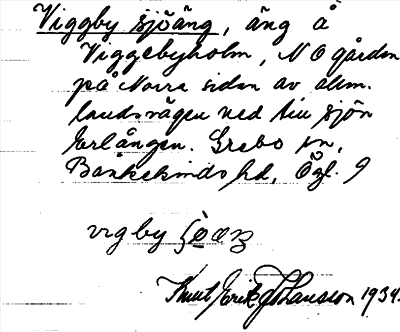 Viggby sjöäng, äng å
Viggebyholm, N O gården
på Norra sidan av allm.
landsvägen ned till sjön
Erlången. Grebo sn,
Bankekinds hd, Ögl. 9
vigby
Knut Erik Johansson 1934.